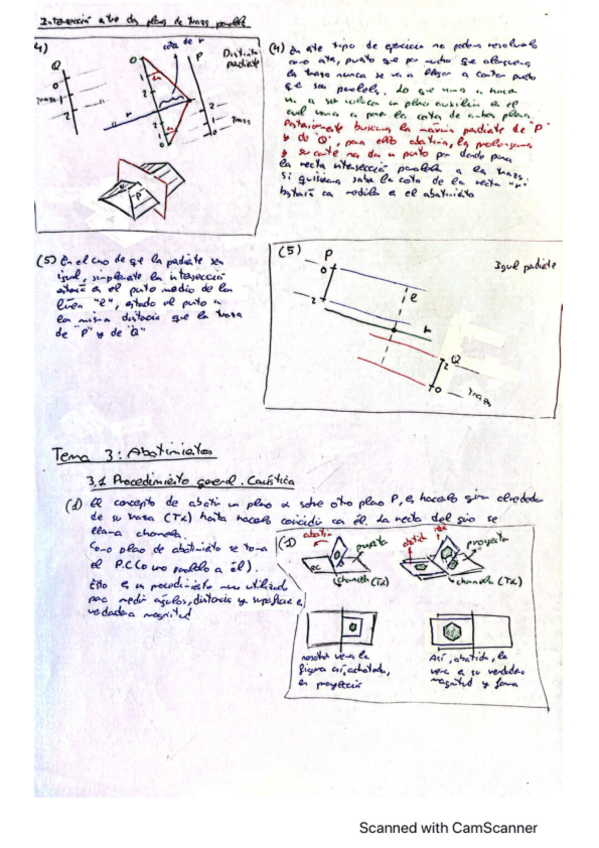 Intersección entre dos planos de trazas paralelas
4)
Q
0
1
2
Traza
0
1
2
cota de r
P
Distinta
pendiente
0
1
2
Traza
r
(4) En este tipo de ejercicio no podemos resolverlo
como antes, puesto que por mucho que alarguemos
la traza nunca se van a llegar a cortar puesto
que son paralelas. Lo que vamos a hacer
es colocar un plano auxiliar en el
cual vamos a poner la cota de ambos planos.
Posteriormente buscamos la máxima pendiente de "P"
y de "Q", para ello abatimos, las prolongamos
y su corte nos da un punto por donde pasa
la recta intersección paralela a las trazas.
Si quisiéramos saber la cota de la recta "r"
bastará con medirla en el abatimiento
(5) En el caso de que la pendiente sea
igual, simplemente la intersección
estará en el punto medio de la
línea "l", estando el punto a
la misma distancia que la traza
de "P" y de "Q"
(5)
P
0
2
Igual pendiente
l
r
Q
2
0
Traza
Tema 3: Abatimientos
3.1 Procedimiento general. Casuística
(1) El concepto de abatir un plano α sobre otro plano P, es hacerlo girar alrededor
de su traza (Tα) hasta hacerlo coincidir con él. La recta del giro se
llama charnela.
Como plano de abatimiento se toma
el P.C (o uno paralelo a él).
Esto es un procedimiento muy utilizado
para medir ángulos, distancias y superficies en
verdadera magnitud
(1)
abatir
proyecta
PC
charnela (Tα)
abatida
proyecta
charnela (Tα)
nosotros vemos la
figura así, achatada,
en proyección
Así, abatida, la
vemos en su verdadera
magnitud y forma
Scanned with CamScanner